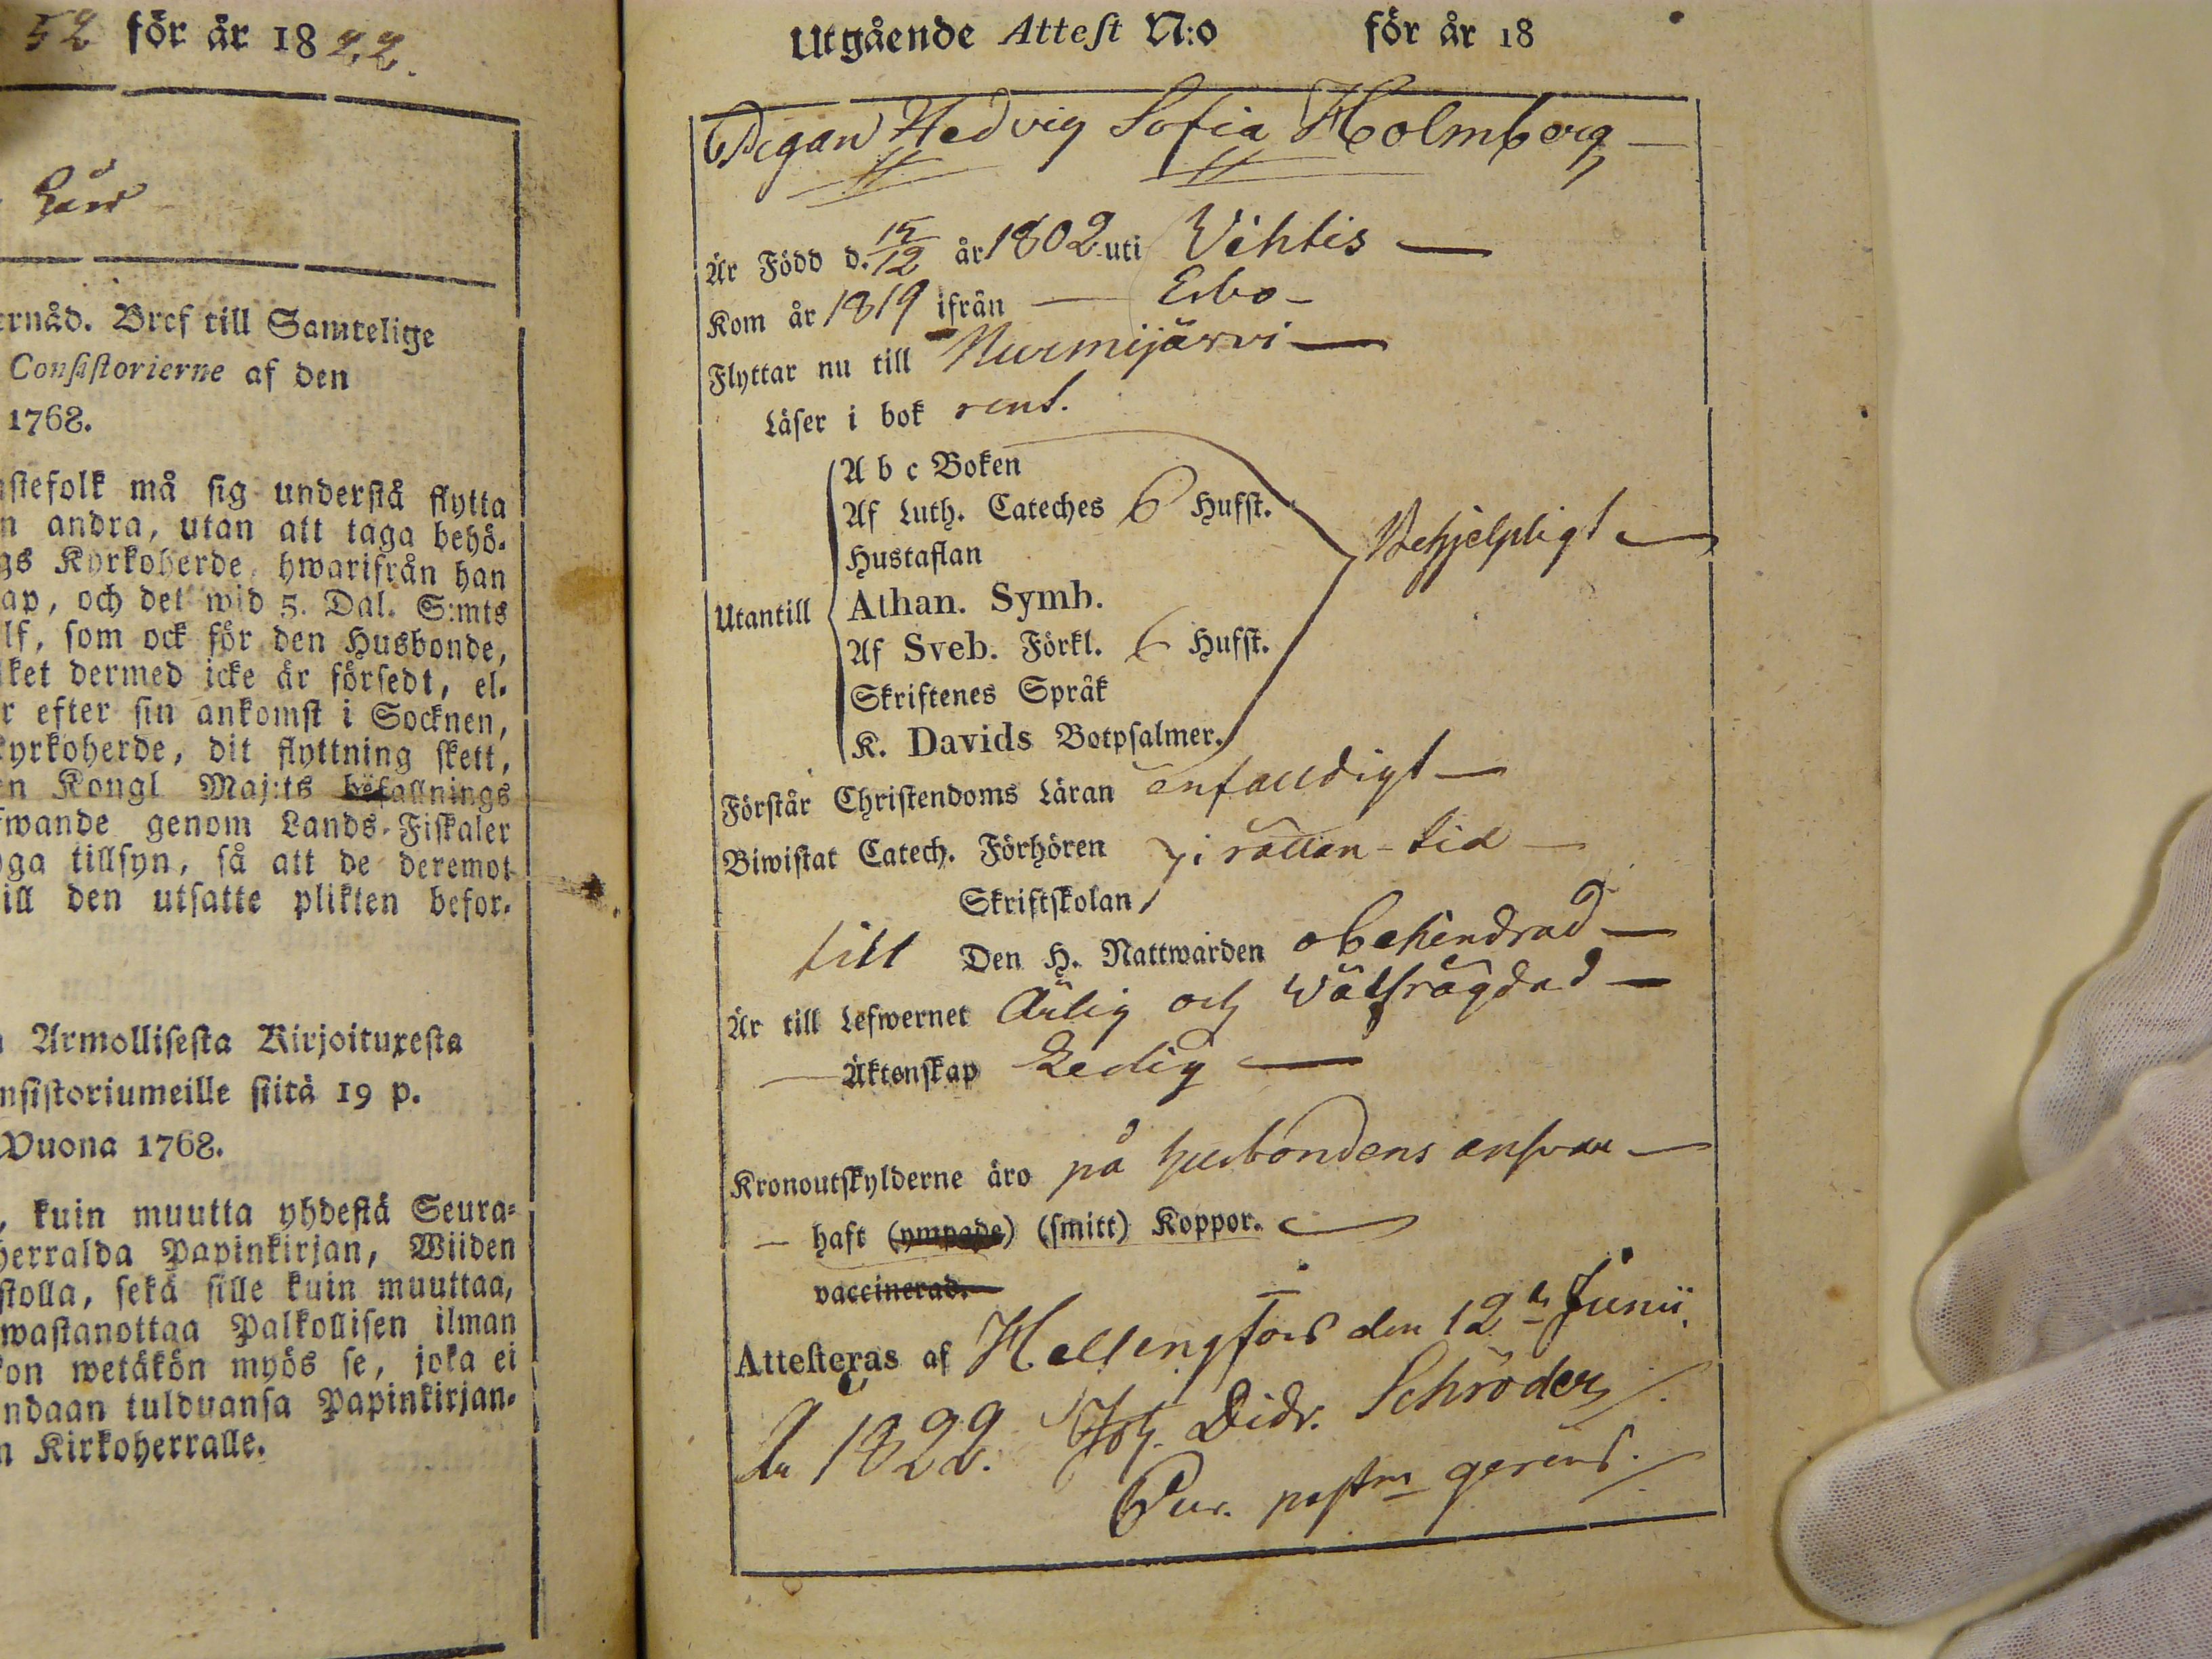 52 för år 1822.
ernåd. Bref till Samtelige
Consistorierne af den
1768.
stefolk må sig understå flytta
n andra, utan att taga behö-
gs Kyrkoherde, hwarifrån han
ap, och det wid 5. Dal. S:mts
lf, som ock för den Husbonde,
ket dermed icke är försedt, el-
r efter sin ankomst i Socknen,
kyrkoherde, dit flyttning skett,
en Kongl Maj:ts befallnings
fwande genom Lands-Fiskaler
oga tillsyn, så att de deremot
ill den utsatte plikten befor-
Armollisesta Kirjoituxesta
nsistoriumeille siitä 19 p.
Wuona 1768.
, kuin muutta yhdestä Seura-
herralda Papinkirjan, Wiiden
stolla, sekä sille kuin muuttaa,
wastanottaa Palkollisen ilman
kon wetäkön myös se, joka ei
ndaan tulduansa Papinkirjan-
n Kirkoherralle.
Utgående Attest N:o för år 18
Pigan Hedvig Sofia Holmberg
Är Född d. 15/12 år 1802 uti Vihtis
Kom år 1819 ifrån Esbo
Flyttar nu till Nurmijärvi
Läser i bok rent.
A b c Boken
Af Luth. Cateches 6 Hufst.
Hustaflan
Utantill Athan. Symb. Behjelpligt
Af Sveb. Förkl. 6 Hufst.
Skriftenes Språk
K. Davids Botpsalmer.
Förstår Christendoms Läran enfalldigt
Biwistat Catech. Förhören i rättan tid
Skriftskolan
till Den H. Nattwarden obehindrad
Är till Lefwernet Ärlig och välfrägdad
Äktenskap Ledig
Kronoutskylderne äro på husbondens ansvar
haft (ympade) (smitt) Koppor.
vaccinerad.
Attesteras af Helsingfors den 12 Junii
År 1822. Joh. Didr. Schröder
Cur. past:m gerens.